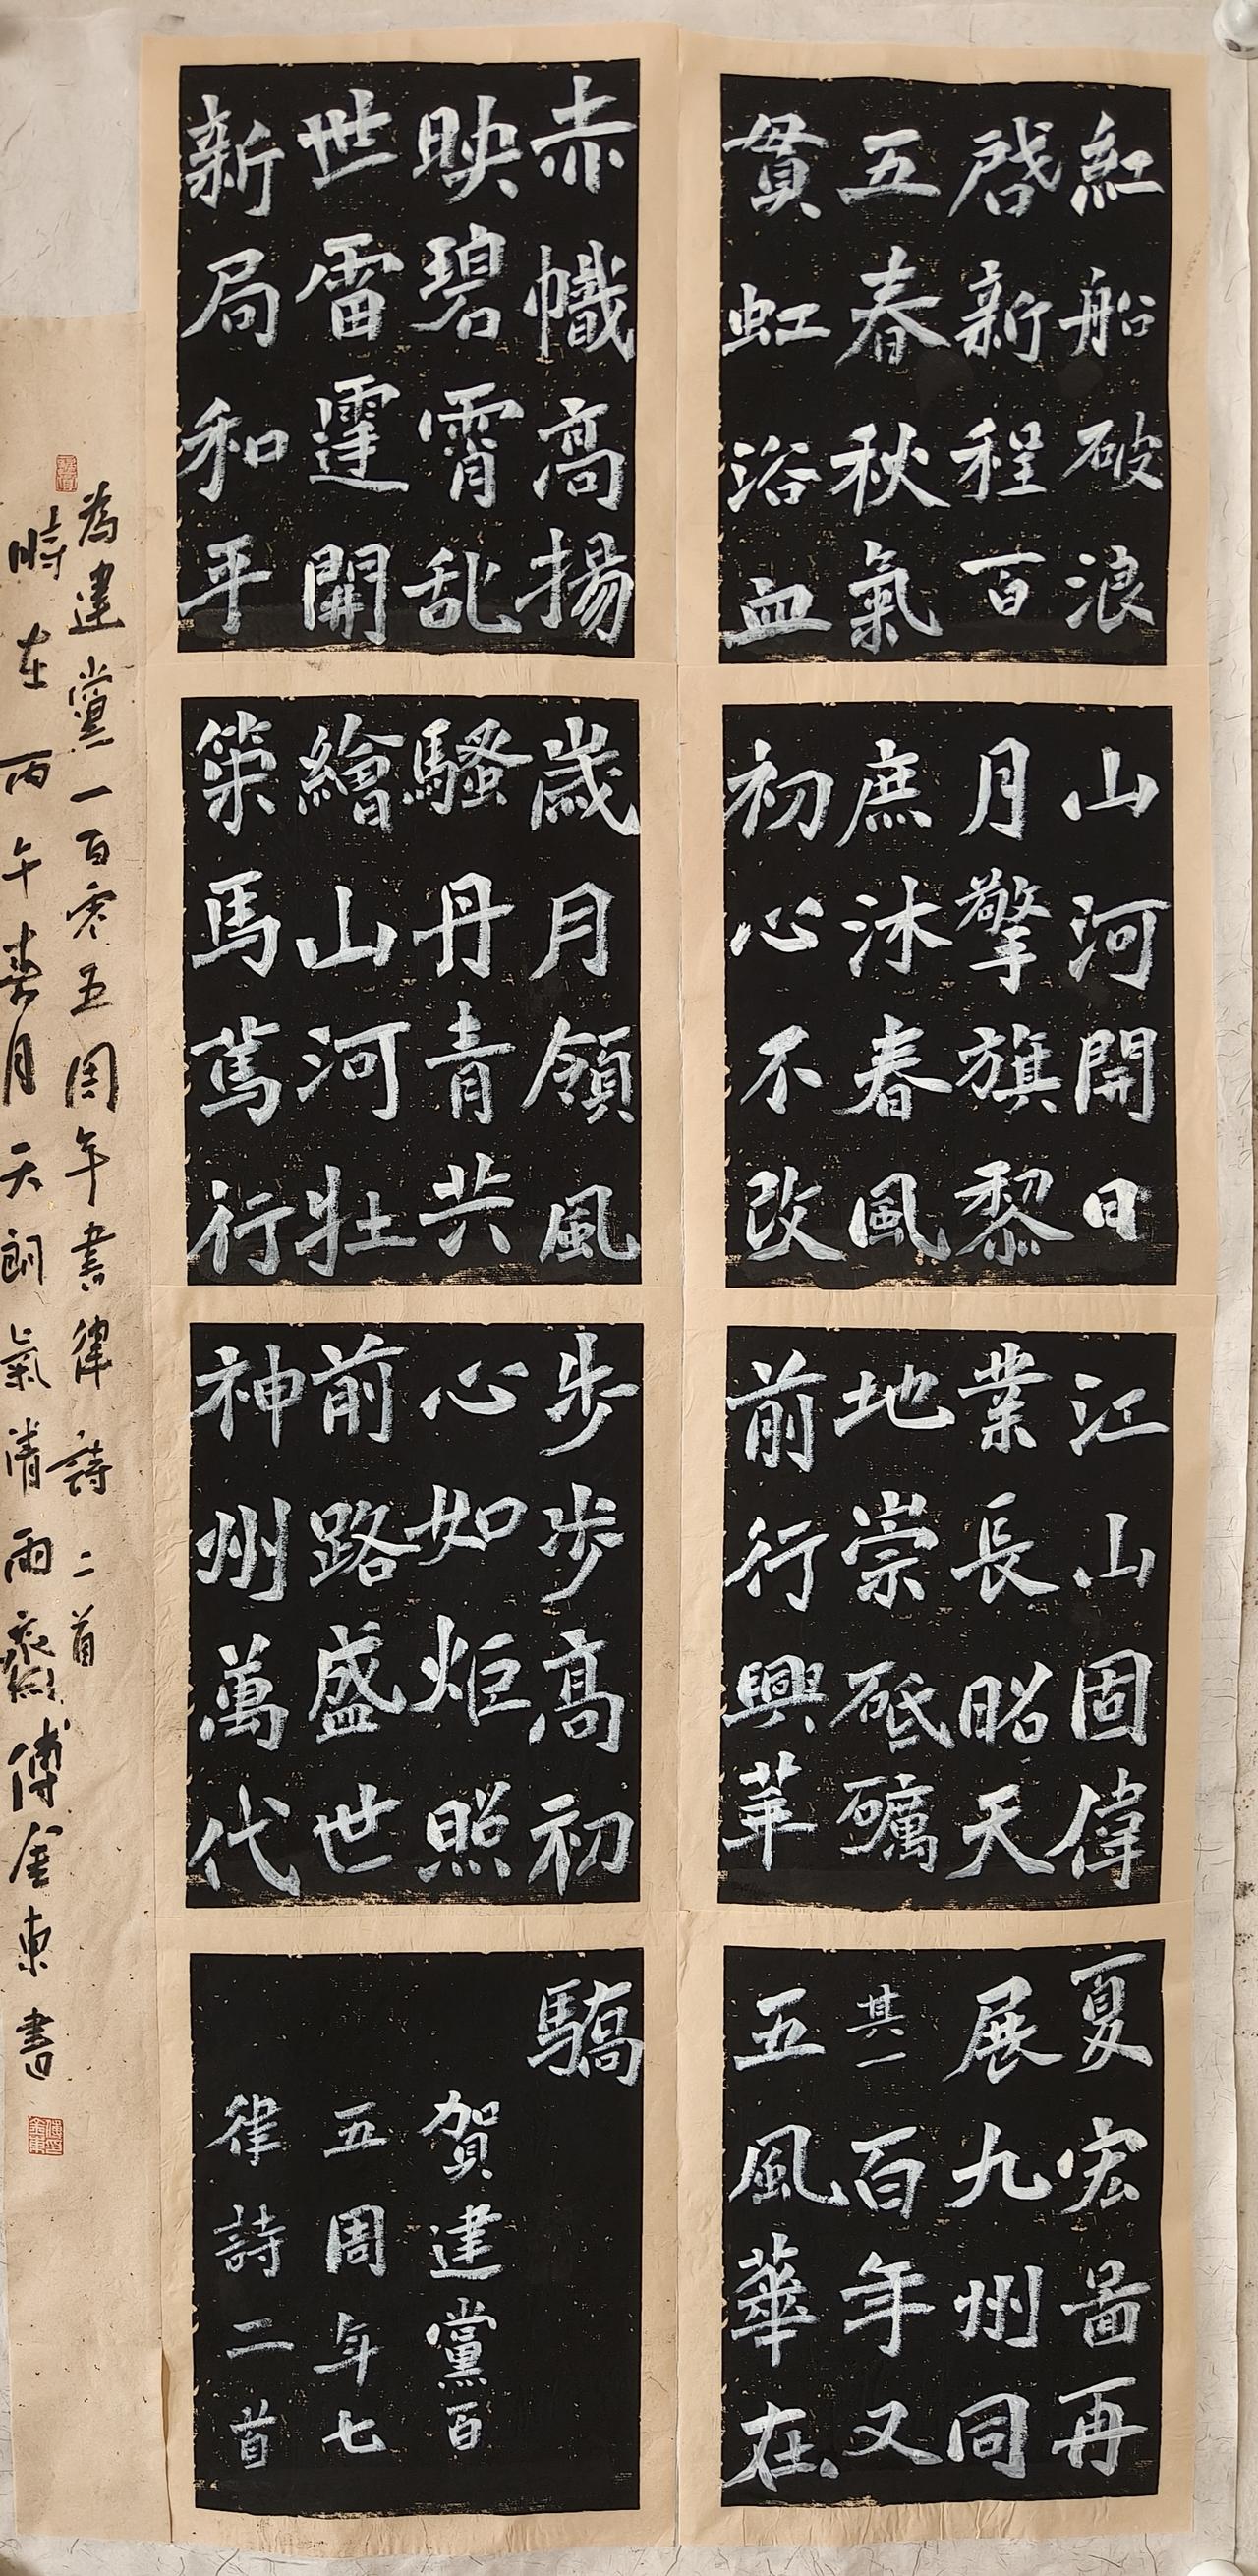 紅船破浪
啓新程百
五春秋氣
貫虹浴血
山河開日
月擎旗黎
庶沐春風
初心不改
江山固偉
業長昭天
地崇砥礪
前行興華
夏宏啚再
展九州同
其一百年又
五風華在
赤幟高揚
映碧霄乱
世雷霆開
新局和平
歲月領風
騷丹青共
繪山河壯
策馬篤行
步步高初
心如炬照
前路盛世
神州萬代
驕
賀建黨百
五周年七
律詩二首
為建黨一百零五周年書律詩二首
時在丙午春月天朗氣清雨齋傅金東書